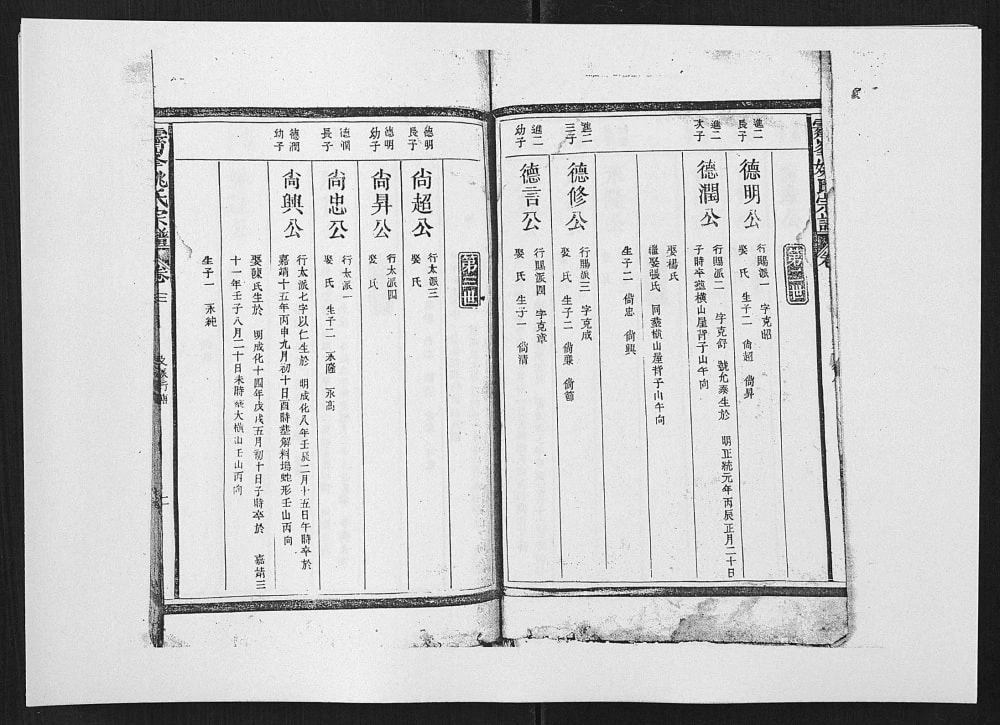 姚氏宗譜
第二世
進二
長子
德明公
行賜派一 字克韶
娶 氏 生子二 尙超 尙昇
進二
次子
德潤公
行賜派二 字克舒 號允泰生於 明正統元年丙辰正月二十日
子時卒葬橫山屋背子山午向
娶楊氏
繼娶張氏 同葬橫山屋背子山午向
生子二 尙忠 尙興
進二
三子
德修公
行賜派三 字克成
娶 氏 生子二 尙廉 尙節
進二
幼子
德言公
行賜派四 字克章
娶 氏 生子一 尙清
第三世
德明
長子
尙超公
行太派三
娶 氏
德明
幼子
尙昇公
行太派四
娶 氏
德潤
長子
尙忠公
行太派一
娶 氏 生子二 永隆 永高
德潤
幼子
尙興公
行太派七字以仁生於 明成化八年壬辰二月十五日午時卒於
嘉靖十五年丙申九月初十日酉時葬解料塢蛇形壬山丙向
娶陳氏生於 明成化十四年戊戌五月初十日子時卒於 嘉靖三
十一年壬子八月二十日未時葬大橫山壬山丙向
生子一 永純
姚氏宗譜 卷三